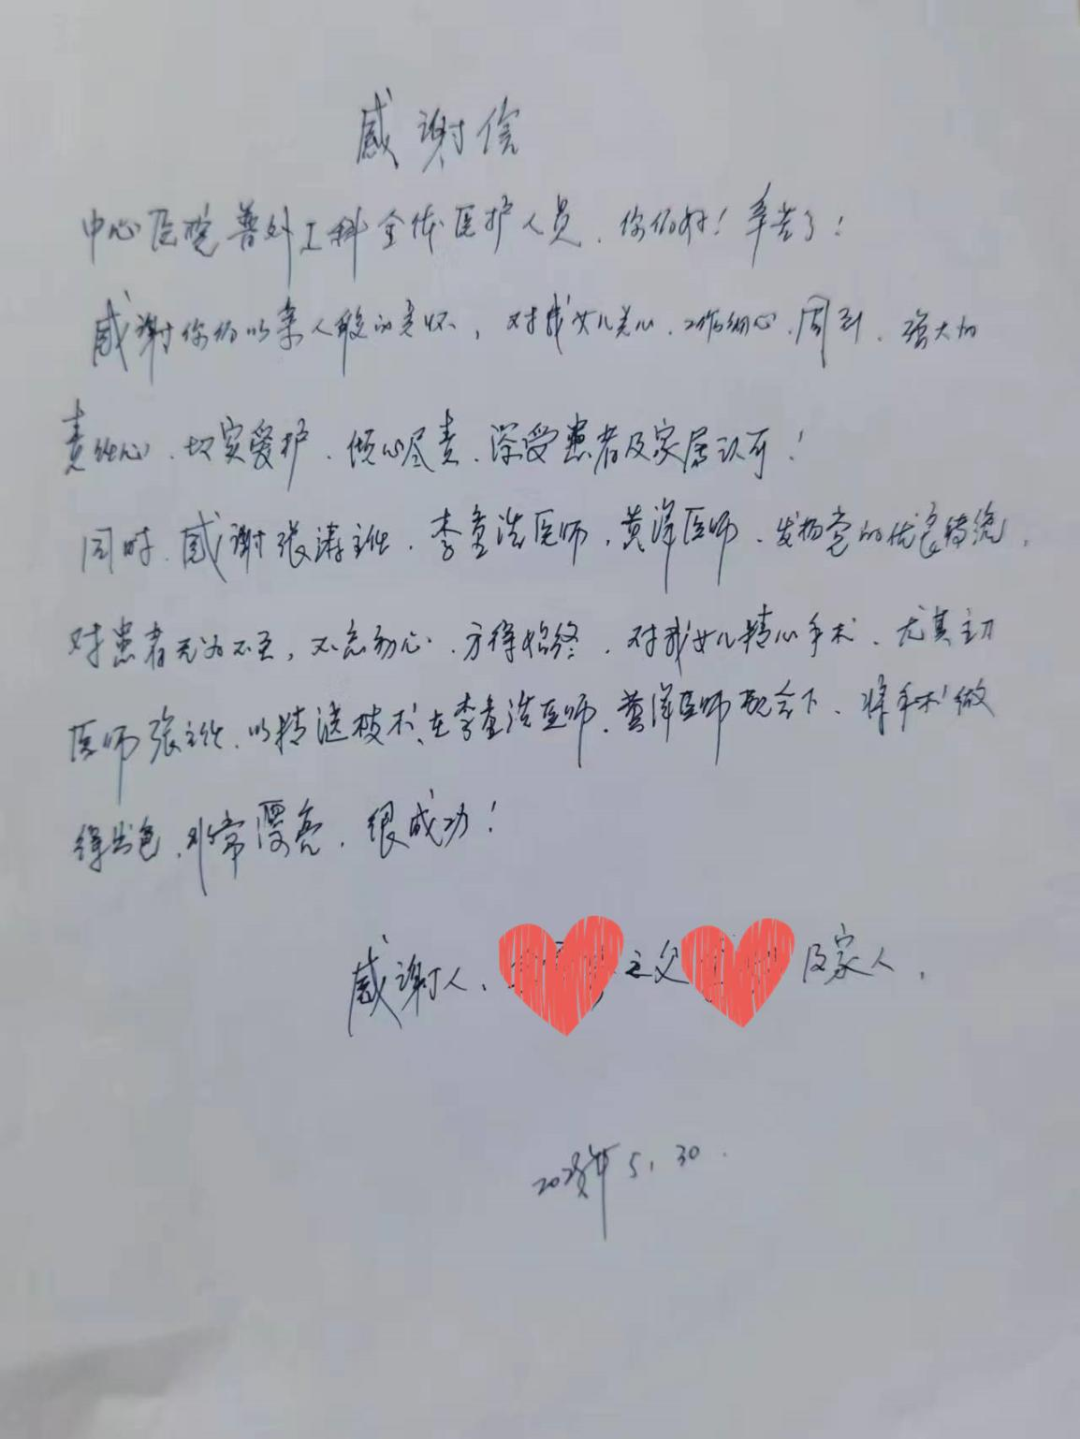 感谢信
中心医院普外I科全体医护人员、你们好！辛苦了！
感谢你们以亲人般的关怀，对我女儿关心、工作细心、周到、强大的
责任心、切实爱护、倾心尽责、深受患者及家属认可！
同时、感谢张涛主任、李重浩医师、黄洋医师、发扬党的优良传统、
对患者无为不至，不忘初心、方得始终、对我女儿精心手术、尤其主刀
医师张主任、以精湛技术、在李重浩医师、黄洋医师配合下、将手术做
得出色、非常漂亮、很成功！
感谢人、之父及家人、
年5.30.